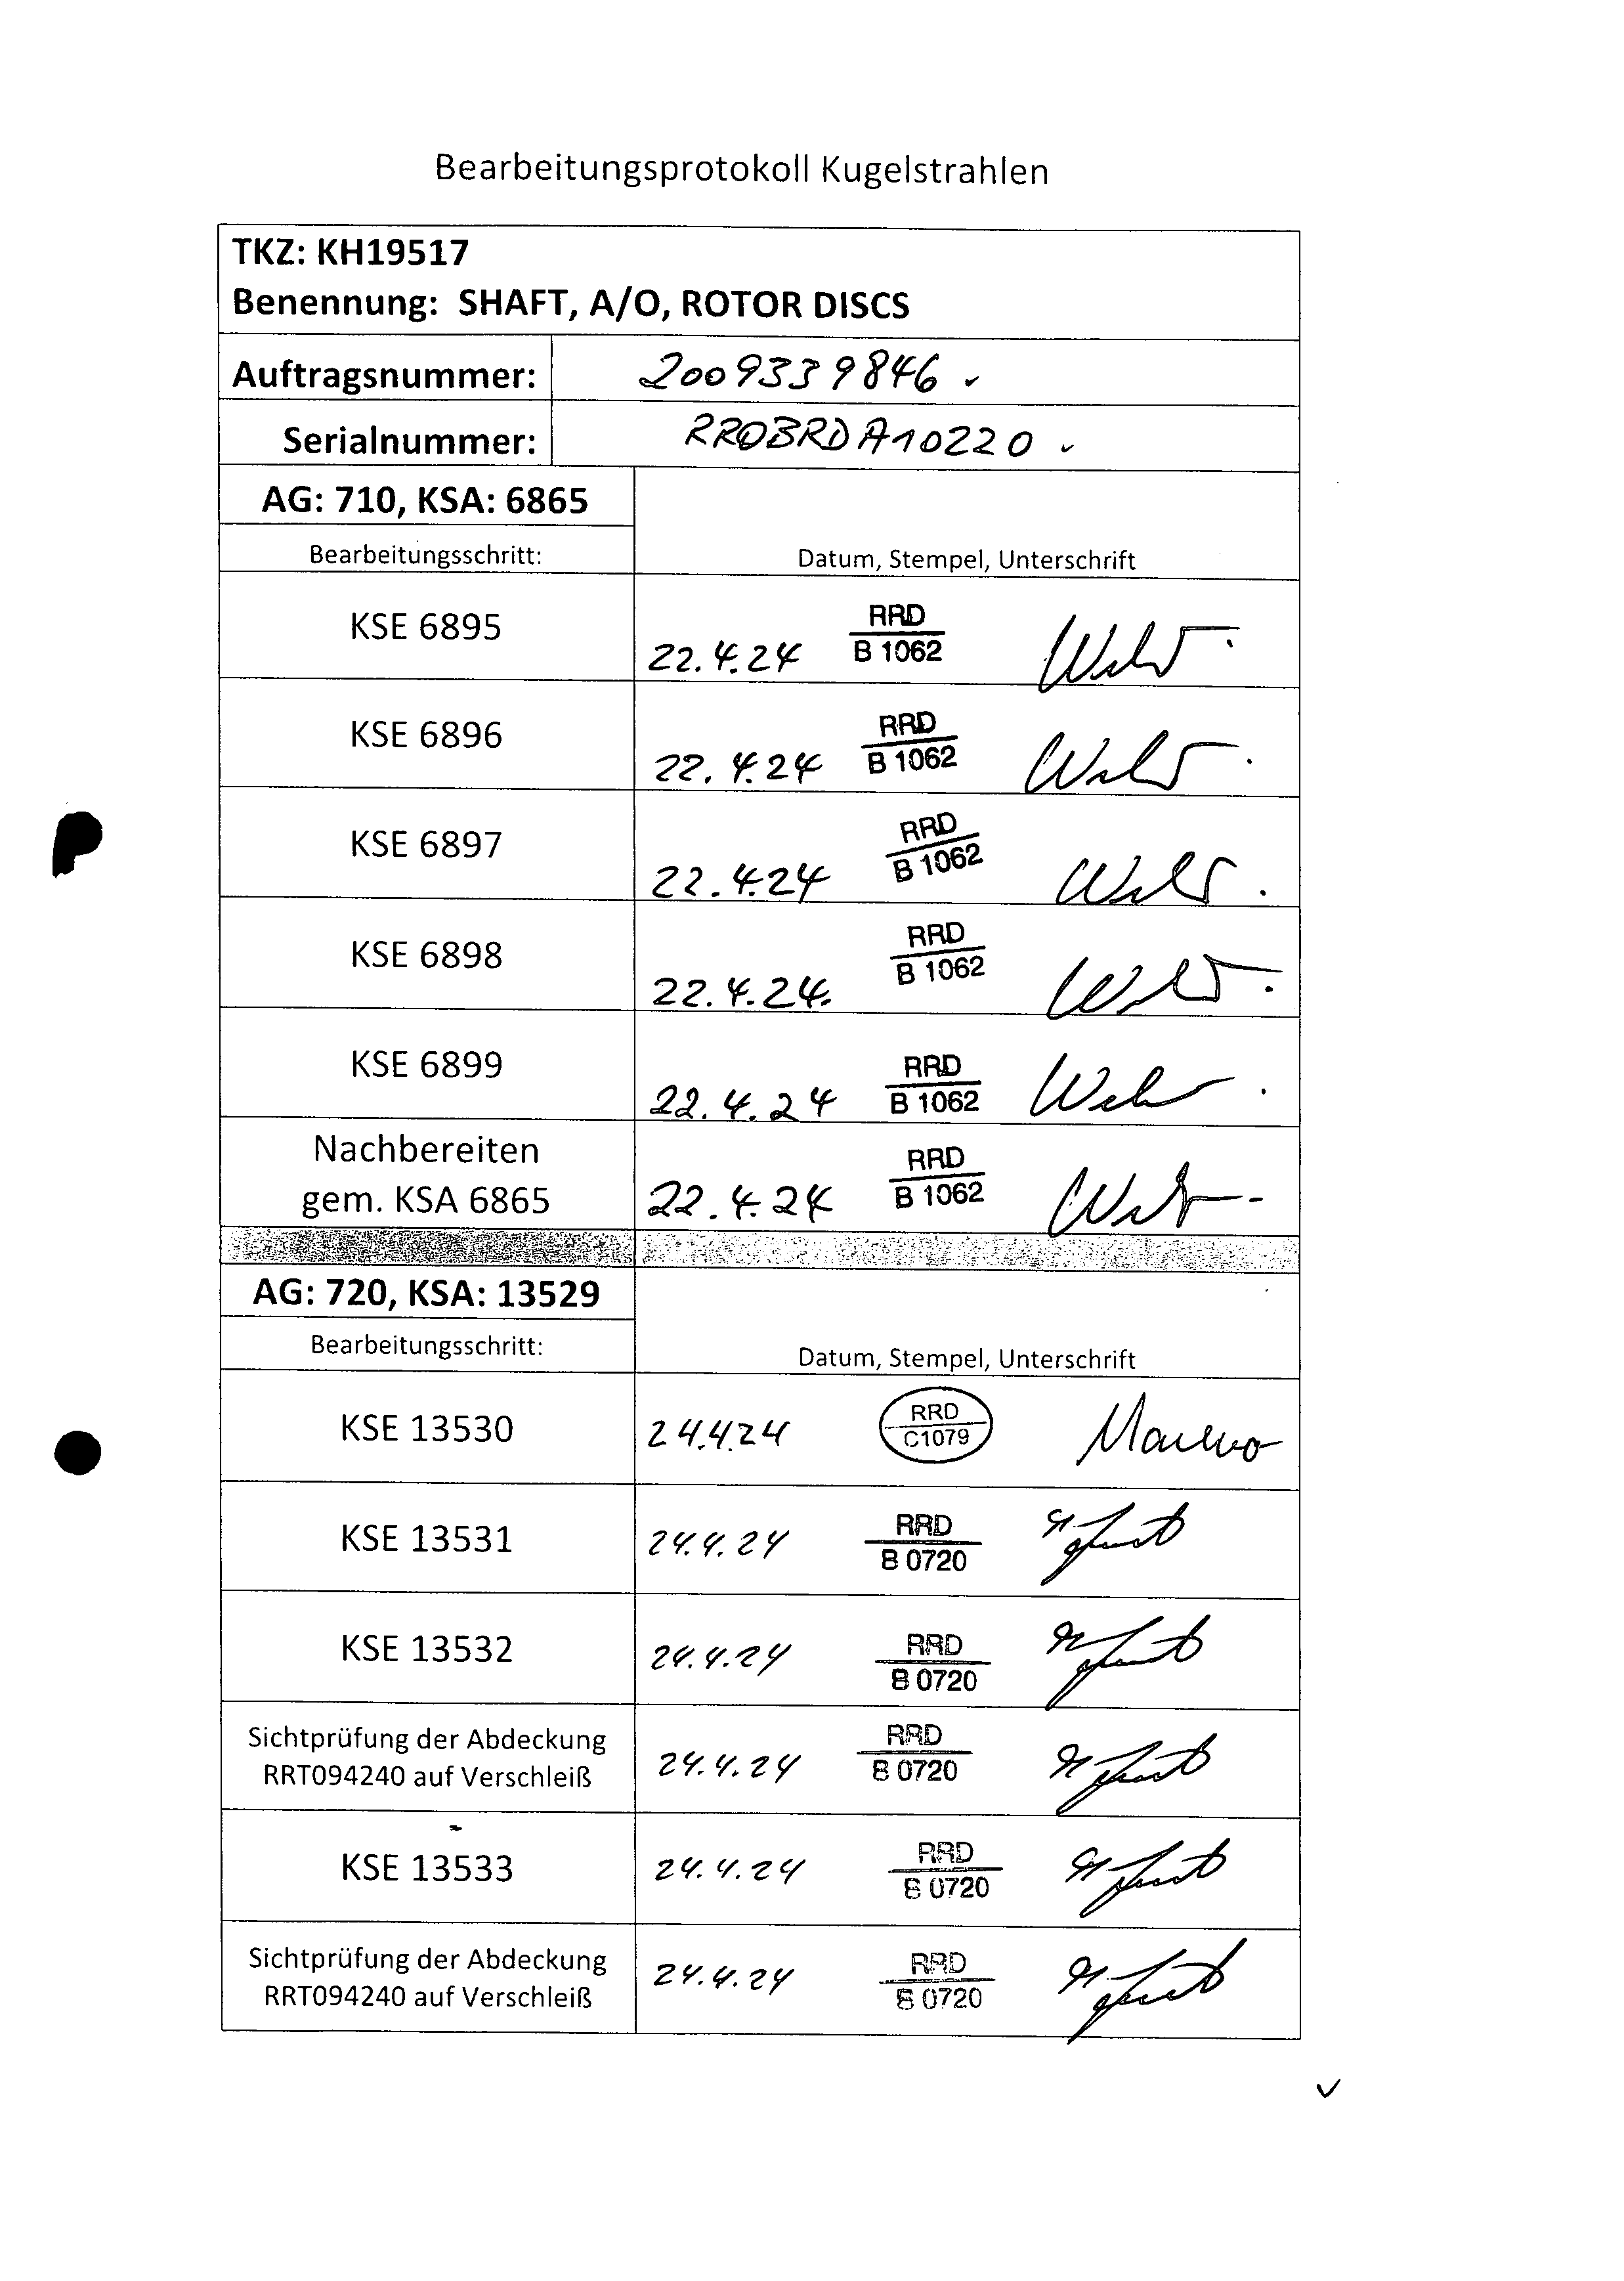 Bearbeitungsprotokoll Kugelstrahlen
TKZ: KH19517
Benennung: SHAFT, A/O, ROTOR DISCS
Auftragsnummer: 2009339846
Serialnummer: RROBRDA10220
AG: 710, KSA: 6865
Bearbeitungsschritt: Datum, Stempel, Unterschrift
RRD
KSE 6895 22.4.24 B 1062
RRD
KSE 6896 22.4.24 B 1062
RRD
KSE 6897 22.4.24 B 1062
RRD
KSE 6898 22.4.24. B 1062
RRD
KSE 6899 22.4.24 B 1062
Nachbereiten RRD
gem. KSA 6865 22.4.24 B 1062
AG: 720, KSA: 13529
Bearbeitungsschritt: Datum, Stempel, Unterschrift
RRD
KSE 13530 24.4.24 C1079
RRD
KSE 13531 24.4.24 B 0720
RRD
KSE 13532 24.4.24 B 0720
Sichtprüfung der Abdeckung RRD
RRT094240 auf Verschleiß 24.4.24 B 0720
RRD
KSE 13533 24.4.24 B 0720
Sichtprüfung der Abdeckung RRD
RRT094240 auf Verschleiß 24.4.24 B 0720